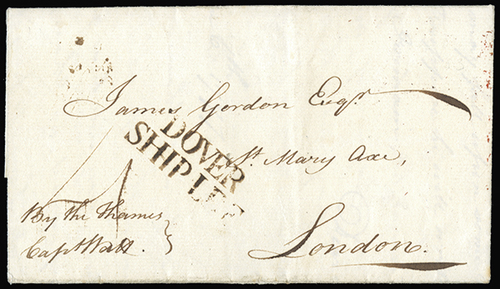 James Gordon Esqr
DOVER
SHIP LE
St. Mary Axe,
By the Thames
Capt Watt.
London.